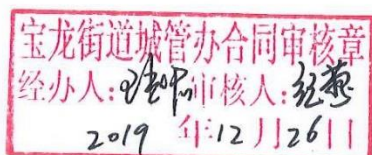 宝龙街道城管办合同审核章
经办人: 审核人:
2019 年12月26日